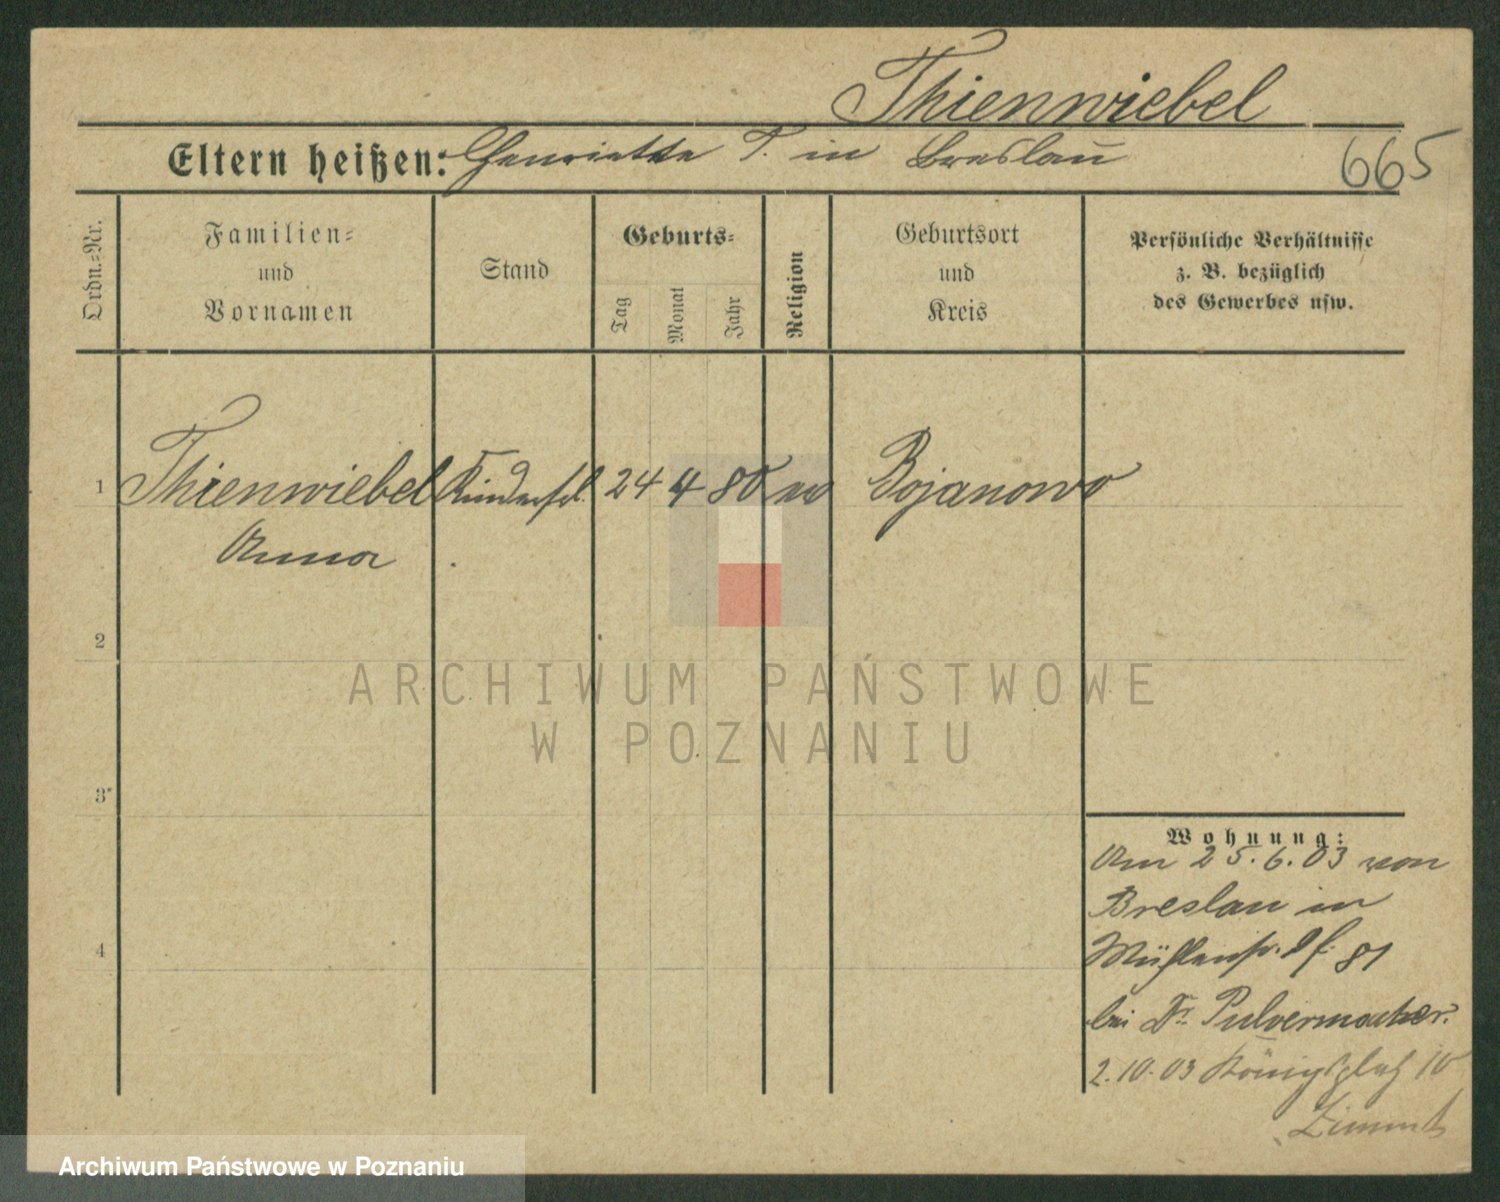 Thienwiebel
Eltern heißen: Henriette T. in Breslau
665
Ordn.-Nr.
Familien-
und
Vornamen
Stand
Geburts-
Tag
Monat
Jahr
Religion
Geburtsort
und
Kreis
Persönliche Verhältnisse
z. B. bezüglich
des Gewerbes usw.
1 Thienwiebel Kinderfrl. 24 4 80 ev Bojanowo
Anna
2
3
4
ARCHIWUM PAŃSTWOWE
W POZNANIU
Wohnung:
Am 25.6.03 von
Breslau in
Mühlenstr. 81
bei Dr. Pulvermacher.
2.10.03 Königsplatz 10
Zimmt
Archiwum Państwowe w Poznaniu